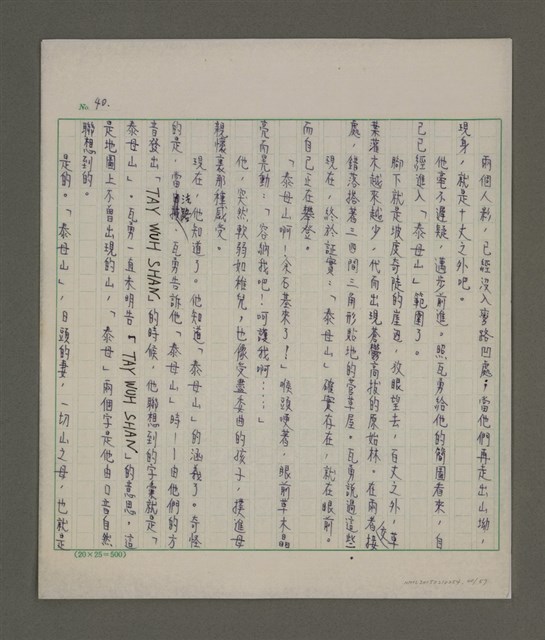 No. 40.
兩個人影，已經沒入彎路凹處；當他們再走出山坳，
現身，就是十丈之外吧。
他毫不遲疑，邁步前進。照瓦勇給他的簡圖看來，自
己已經進入「泰母山」範圍了。
腳下就是坡度奇陡的崖道，放眼望去，百丈之外，草
葉灌木越來越少，代而出現蒼鬱高拔的原始林。在兩者接交
處，錯落搭著三四間三角形點地的菅草屋。瓦勇說過這些。
現在，終於証實：「泰母山」確實存在，就在眼前。
而自己正在攀登。
「泰母山啊！余石基來了！」喉頭哽著，眼前草木晶
亮而晃動：「容納我吧！呵護我啊……」
他，突然軟弱如稚兒，也像受盡委曲的孩子，撲進母
親懷裏那種感受。
現在，他知道了。他知道「泰母山」的涵義了。奇怪
的是，當初瓦勇告訴他「泰母山」時——由他們的方
音發出「TAY WUH SHAN」的時候，他聯想到的字彙就是「
泰母山」。瓦勇一直未明告「TAY WUH SHAN」的意思。這
是地圖上不曾出現的山，「泰母」兩個字是他由口音自然
聯想到的。
是的。「泰母山」，日頭的妻，一切山之母，也就是
(20×25=500)